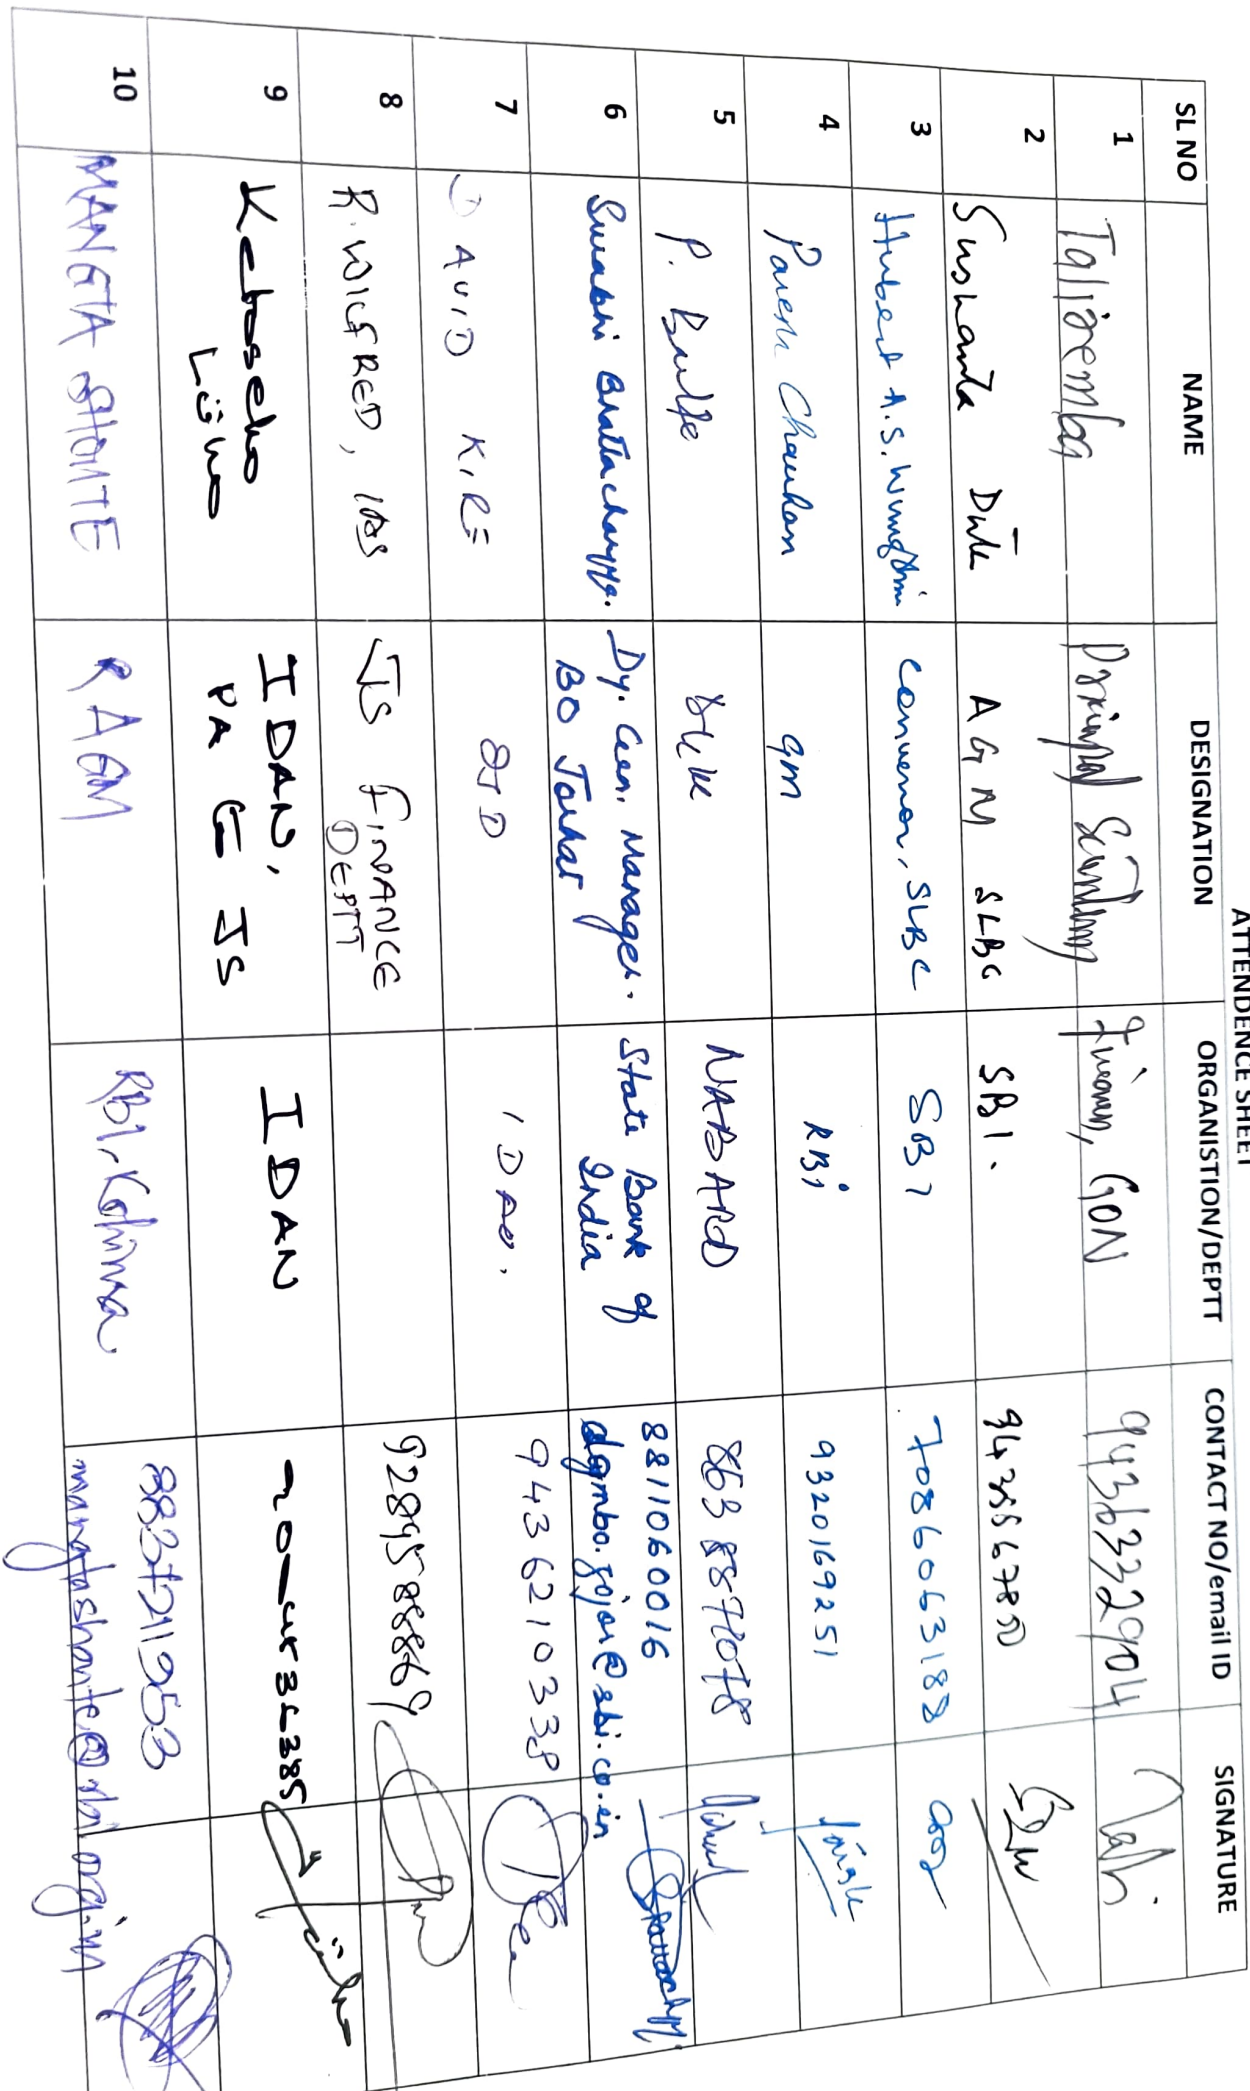 ATTENDENCE SHEET
SL NO NAME DESIGNATION ORGANISTION/DEPTT CONTACT NO/email ID SIGNATURE
1 Talijemba Principal Secretary Finance, GON 9436332904
2 Sushanta Dutta AGM SLBC SBI.
3 Hubert A.S. Wungthui Convenor, SLBC SBI 7086063188
4 Paresh Chauhan GM RBI 9320169251
5 P. NABARD
6 Surabhi Bhattacharyya. Dy. Gen. Manager. State Bank of 8811060016
BO Jorhat India dgmbo.zojor@sbi.co.in
7 DAVID KIRE IDAN. 9436210338
8 R. WILFRED, IAS JS FINANCE
DEPTT
9289588869
9 Keboseho IDAN, IDAN
Lüho PA & JS
10 MANGTA SHANTE RAGM RBI, Kohima 8837211953
mangtashante@rbi.org.in